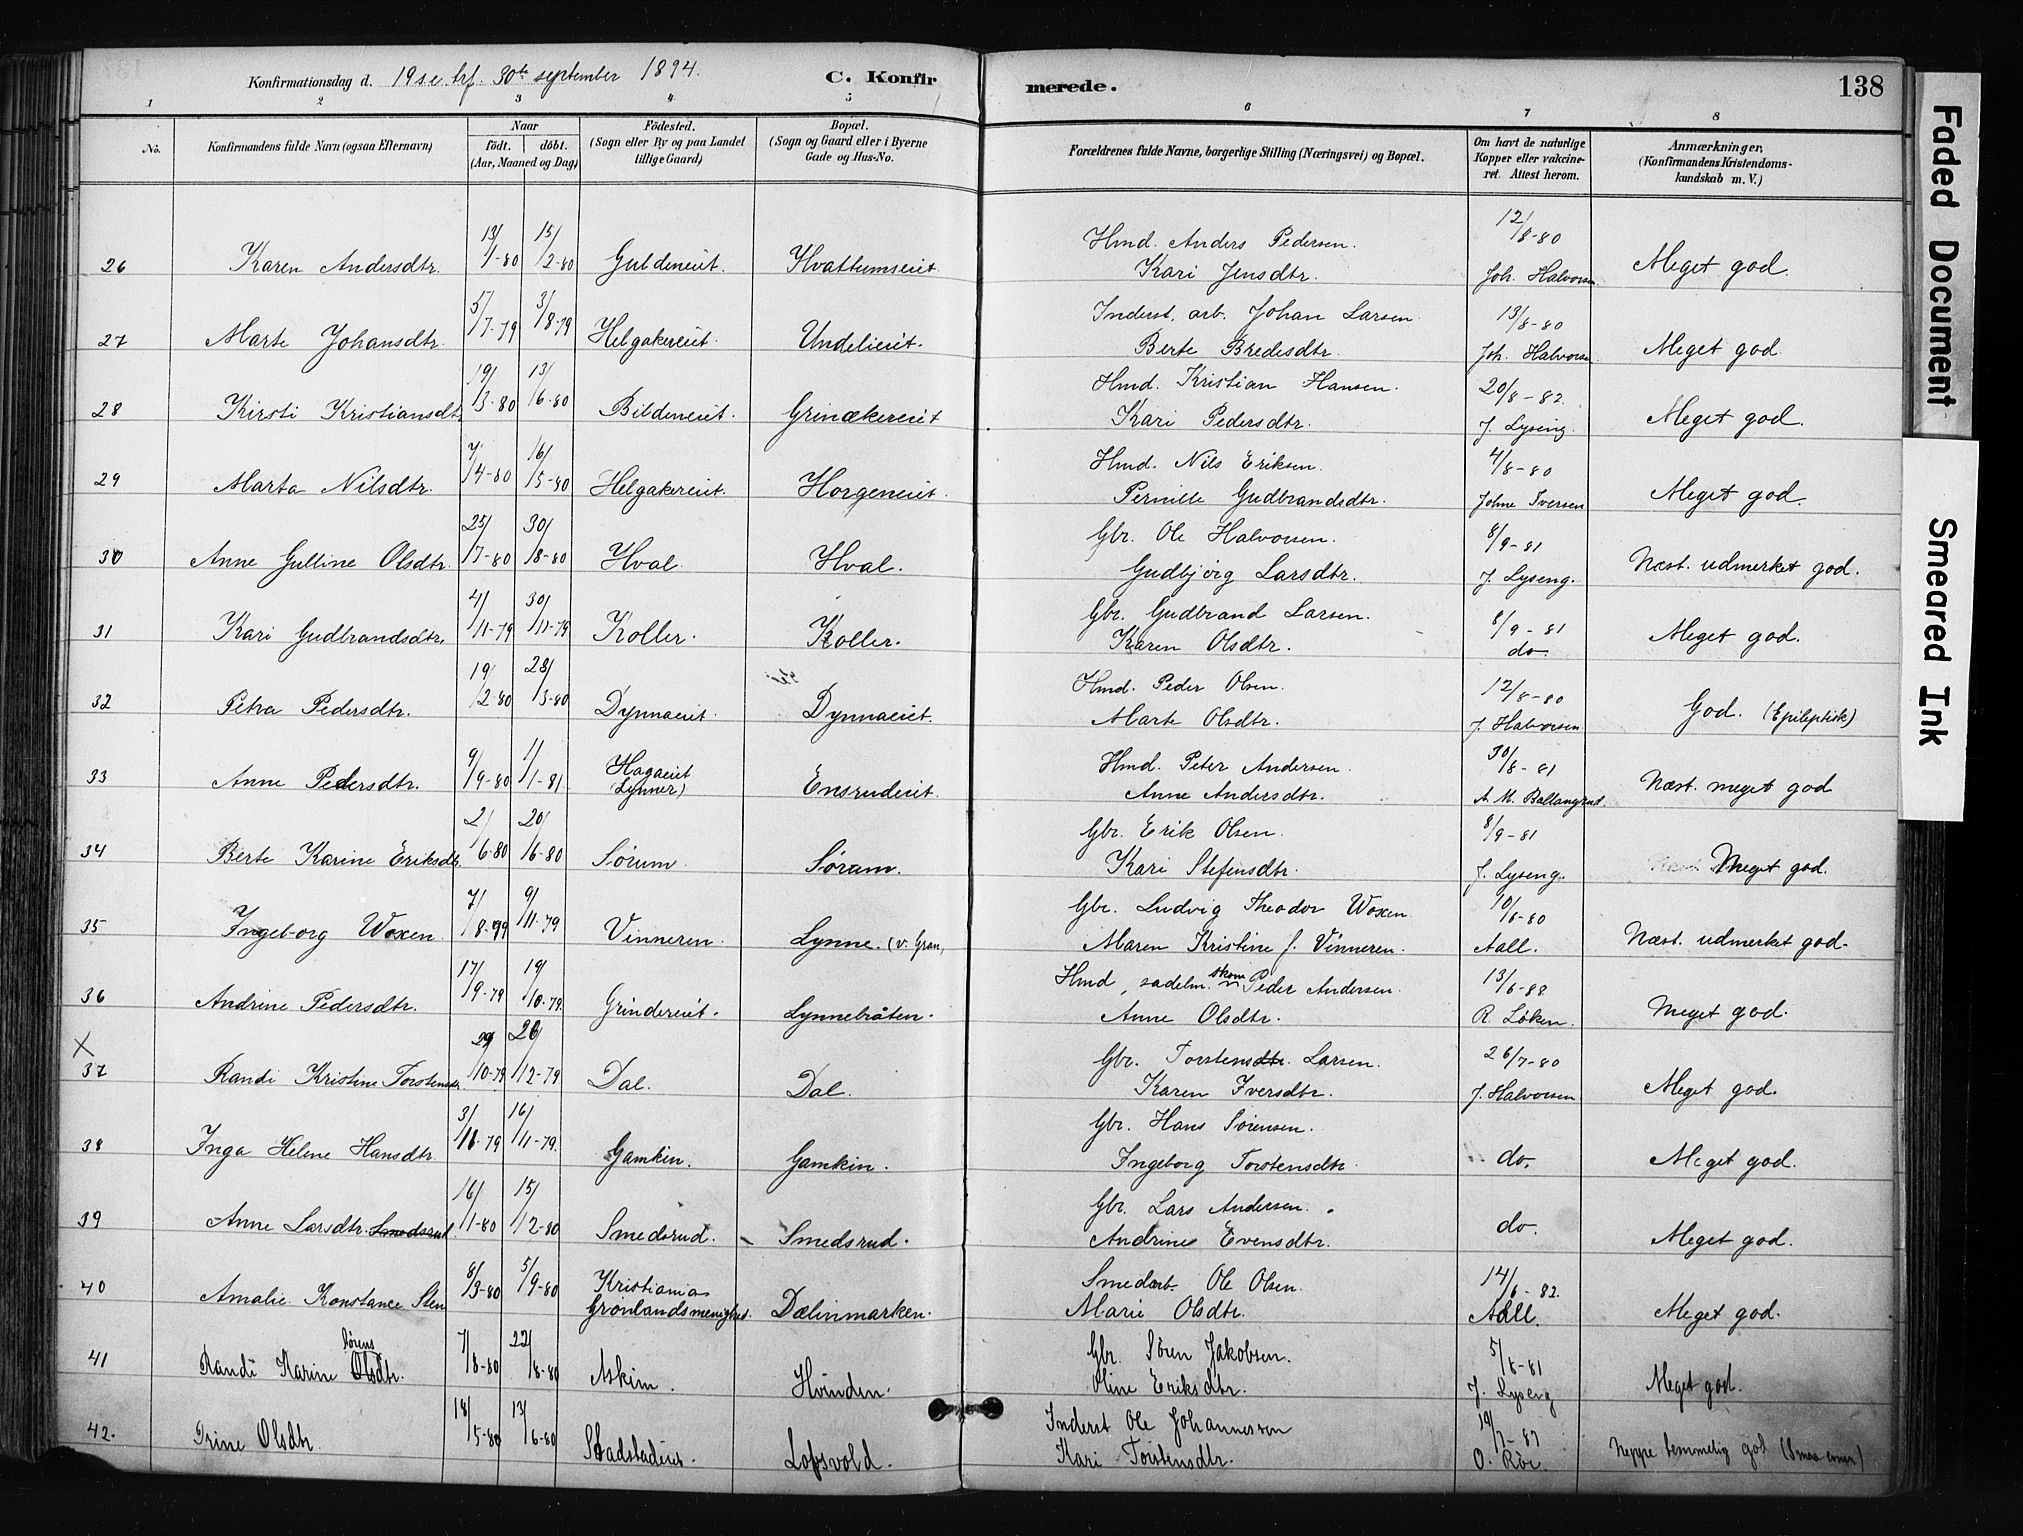 Konfirmationsdag d. 19 s.e. trf. 30te september 1894.
C. Konfirmerede.
138
1 2 3 4 5 6 7 8
No.
Konfirmandens fulde Navn (ogsaa Efternavn)
Naar
født. døbt.
(Aar, Maaned og Dag)
Födested.
(Sogn eller By og paa Landet
tillige Gaard)
Bopæl.
(Sogn og Gaard eller i Byerne
Gade og Hus-No.
Forældrenes fulde Navne, borgerlige Stilling (Næringsvei) og Bopæl.
Om havt de naturlige
Kopper eller vakcine-
ret. Attest herom.
Anmærkninger.
(Konfirmandens Kristendoms-
kundskab m. V.)
26 Karen Andersdtr. 13/1-80 15/2-80 Guldeneiet. Hvattumseiet. Hmd. Anders Pedersen. 12/8-80
Kari Jensdtr. Joh. Halvorsen Meget god.
27 Marte Johansdtr. 5/7-79 3/8-79 Helgakereiet. Undelieiet. Inderst, arb. Johan Larsen. 13/8-80
Berte Bredesdtr. Joh. Halvorsen Meget god
28 Kirsti Kristiansdtr. 19/3-80 13/6-80 Bildeneiet. Grinækereiet Hmd. Kristian Hansen. 20/8-82
Kari Pedersdtr. J. Lyseng. Meget god.
29 Marta Nilsdtr. 7/4-80 16/5-80 Helgakereiet. Horgeneiet. Hmd. Nils Eriksen. 4/8-80
Pernille Gudbrandsdtr. Johne Iversen Meget god.
30 Anne Gulline Olsdtr. 25/7-80 30/8-80 Hval. Hval. Gbr. Ole Halvorsen. 8/9-81
Gudbjörg Larsdtr. J. Lyseng. Næst. udmerket god.
31 Kari Gudbrandsdtr. 4/11-79 30/11-79 Koller. Koller. Gbr. Gudbrand Larsen. 8/9-81
Karen Olsdtr. do. Meget god.
32 Petra Pedersdtr. 19/2-80 28/3-80 Dynnaeiet. Dynnaeiet. Hmd. Peder Olsen. 12/8-80
Marte Olsdtr. J. Halvorsen God. (Epileptisk)
33 Anne Pedersdtr. 9/9-80 1/1-81 Hagaeiet
Lynner) Ensrudeiet. Hmd. Peter Andersen. 30/8-81
Anne Andersdtr. A. M. Ballangrud Næst. meget god
34 Berte Karine Eriksdtr. 2/6-80 20/6-80 Sørum. Sørum. Gbr. Erik Olsen. 8/9-81
Kari Stefensdtr. J. Lyseng. Meget god.
35 Ingeborg Woxen. 7/8-79 9/11-79 Vinneren. Lynne. (v. Gran, Gbr. Ludvig Theodor Woxen. 10/6-80
Maren Kristine f. Vinneren. Aall. Næst. udmerket god.
36 Andrine Pedersdtr. 17/9-79 19/10-79 Grindereiet. Lynnebråten. Hmd, sadelm. skom Peder Andersen. 13/6-88
Anne Olsdtr. R. Löken. Meget god.
X
37 Randi Kristine Torstensdtr. 29/10-79 26/12-79 Dal. Dal. Gbr. Torstensdtr. Larsen. 26/7-80
Karen Iversdtr. J. Halvorsen Meget god.
38 Inga Helene Hansdtr. 3/10-79 16/11-79 Gamkin. Gamkin. Gbr. Hans Sörensen.
Ingeborg Torstensdtr. do. Meget god.
39 Anne Larsdtr. Smedsrud. 16/1-80 15/2-80 Smedsrud. Smedsrud. Gbr. Lars Andersen.
Andrine Evensdtr. do. Meget god.
40 Amalie Konstance Sten 8/3-80 5/9-80 Kristiania
Grönlandsmenighed. Dælinmarken. Smedarb. Ole Olsen. 14/6-82
Marie Olsdtr. Aall. Meget god.
41 Randi Karine Olsdtr. Sörens 7/8-80 22/8-80 Askim. Hvinden. Gbr. Sören Jakobsen. 5/8-81
Oline Eriksdtr. J. Lyseng Meget god.
42. Trine Olsdtr. 18/5-80 13/6-80 Stadstadeiet Lofsvold. Inderst Ole Johannessen 19/7-87
Kari Torstensdtr. O. Röe. Neppe temmelig god
Faded Document
Smeared Ink